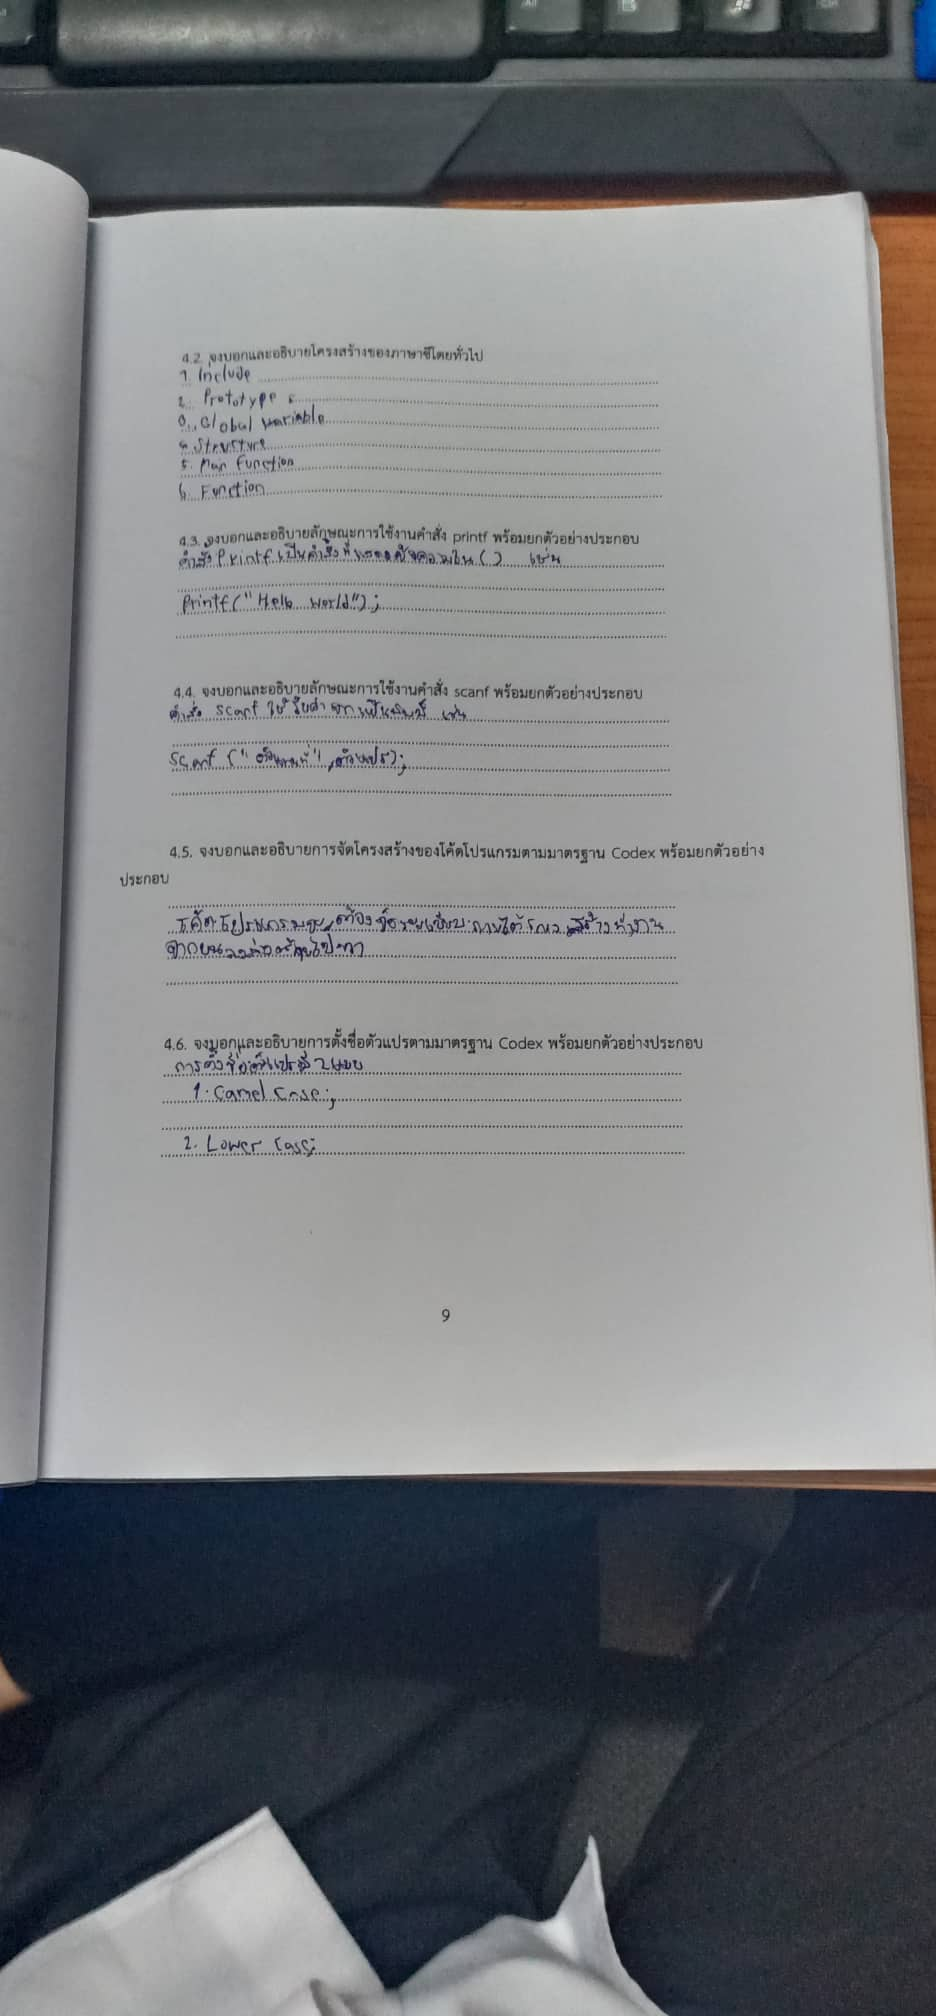 4.2. จงบอกและอธิบายโครงสร้างของภาษาซีโดยทั่วไป
1. Include
2. Prototype
3. Global variable
4. Structure
5. Main Function
6. Function
4.3. จงบอกและอธิบายลักษณะการใช้งานคำสั่ง printf พร้อมยกตัวอย่างประกอบ
คำสั่ง Printf เป็นคำสั่งที่แสดงข้อความใน ( ) เช่น
Printf("Hello World");
4.4. จงบอกและอธิบายลักษณะการใช้งานคำสั่ง scanf พร้อมยกตัวอย่างประกอบ
คำสั่ง Scanf ใช้รับค่าจากแป้นพิมพ์ เช่น
Scanf ("ตัวแทนที่",ตัวแปร);
4.5. จงบอกและอธิบายการจัดโครงสร้างของโค้ดโปรแกรมตามมาตรฐาน Codex พร้อมยกตัวอย่าง
ประกอบ
โค้ดโปรแกรมจะต้องจัดระเบียบภายใต้โครงสร้าง
จากบนลง
4.6. จงบอกและอธิบายการตั้งชื่อตัวแปรตามมาตรฐาน Codex พร้อมยกตัวอย่างประกอบ
การตั้งชื่อตัวแปรมี 2 แบบ
1. Camel Case;
2. Lower Case;
9